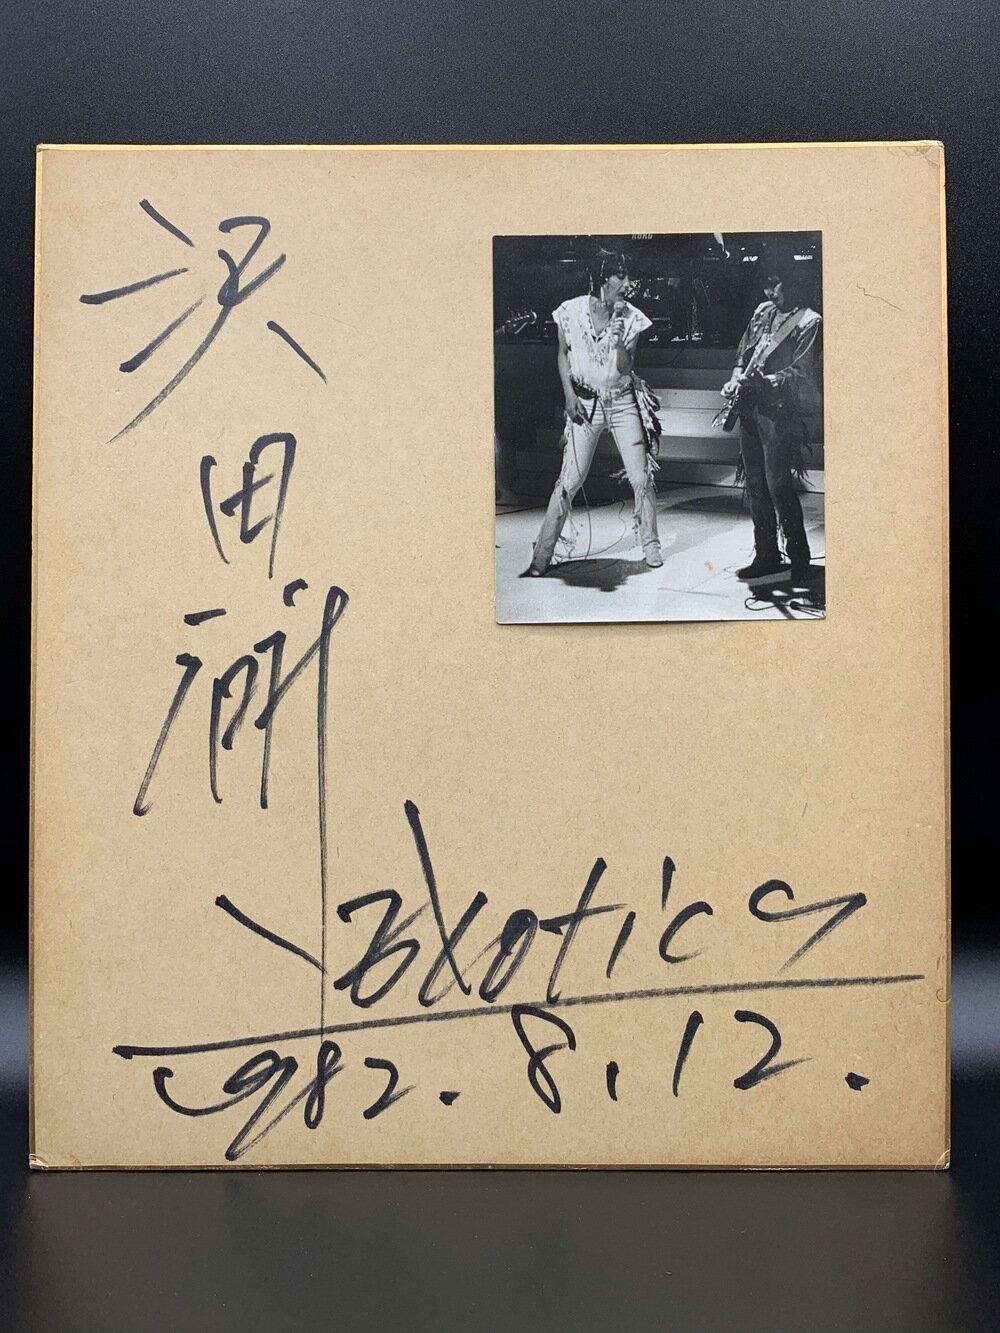 沢田研二
Exotics
1982.8.12.
KORG